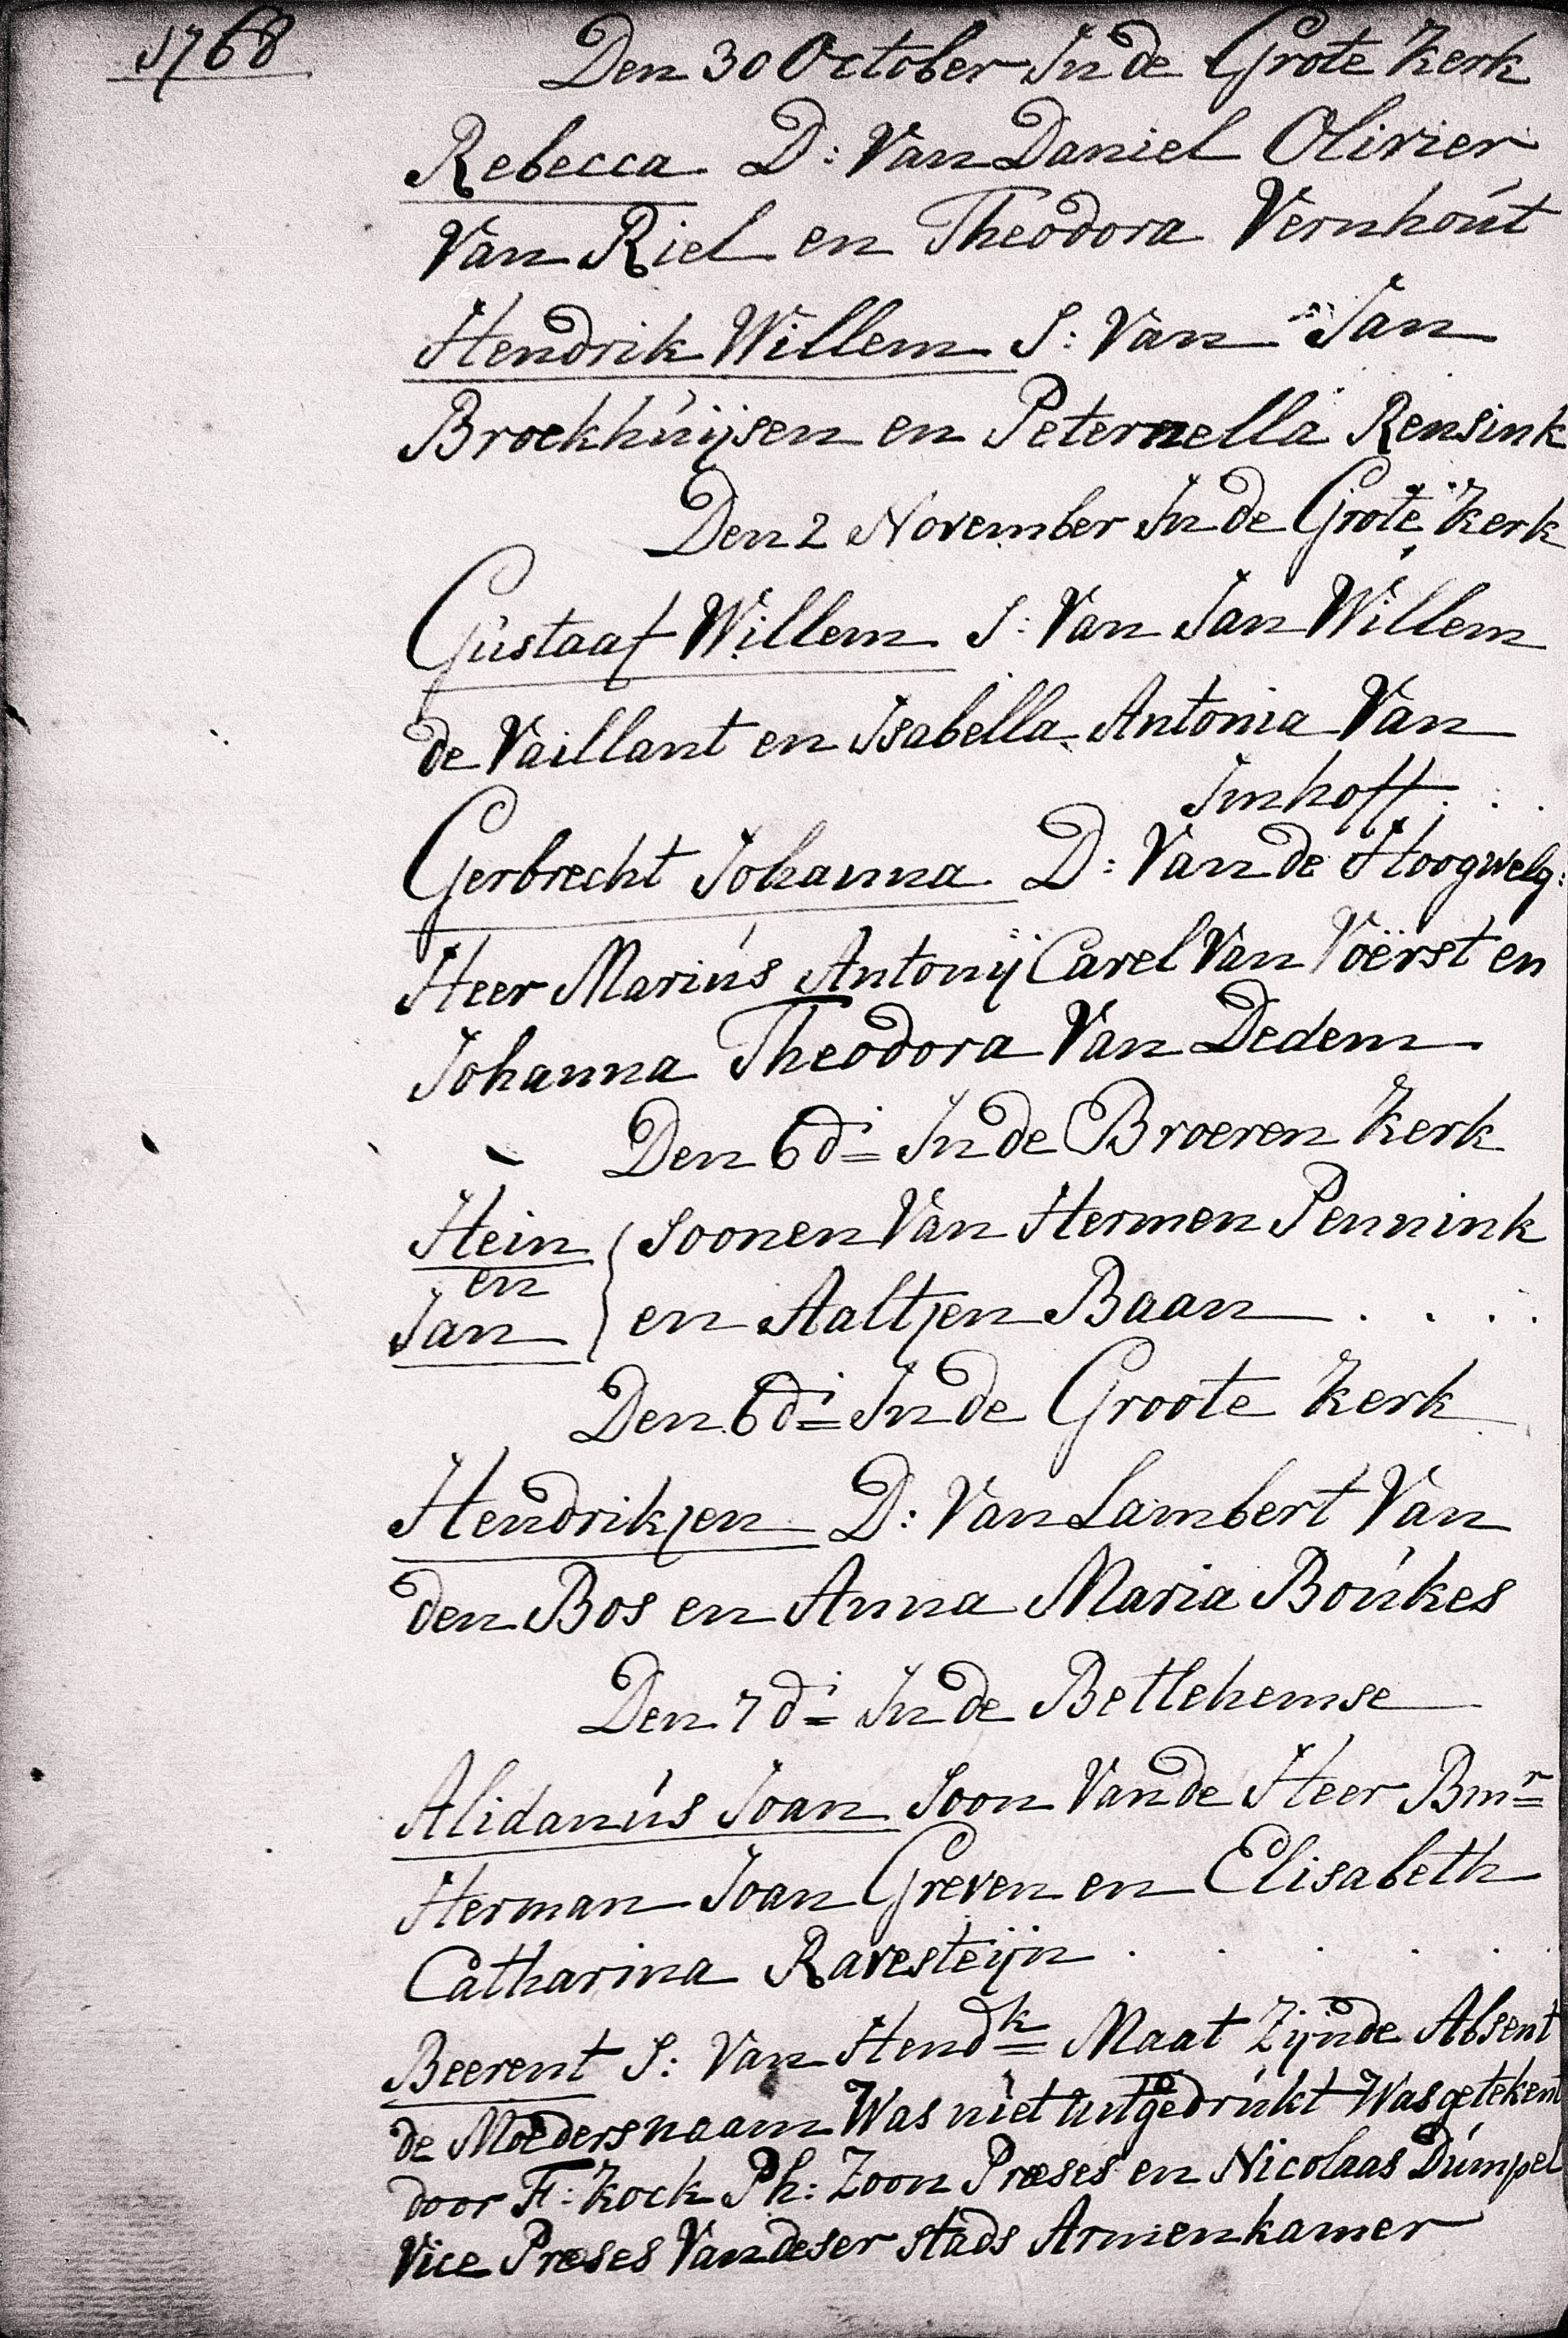 1768
Den 30 October In de Grote Kerk
Rebecca D: Van Daniel Olivier
Van Riel en Theodora Vernhoút
Hendrik Willem S: Van Jan
Broekhúijsen en Peternella Rensink
Den 2 November In de Grote Kerk
Gústaaf Willem S: Van Jan Willem
de Vaillant en Isabella Antonia Van
Imhoff . .
Gerbrecht Johanna D: Van de Hoogwelg:
Heer Mariús Antonij Carel Van Voërst en
Johanna Theodora Van Dedem
Den 6 di In de Broeren Kerk
Hein { Soonen Van Hermen Pennink
en
Jan en Aaltjen Baan . . . .
Den 6 di In de Groote Kerk
Hendrikjen D: Van Lambert Van
den Bos en Anna Maria Boúkes
Den 7 di In de Betlehemse
Alidanús Joan Soon Van de Heer Bmr
Herman Joan Greven en Elisabeth
Catharina Ravesteijn . . . . . .
Beerent S: Van Hendk Maat Zijnde Absent
de Moeders naam Was niet uitgedrúkt Was getekent
door F: Kock Ph: Zoon Præses en Nicolaas Dúmpel
Vice Præses Van deser stads Armenkamer